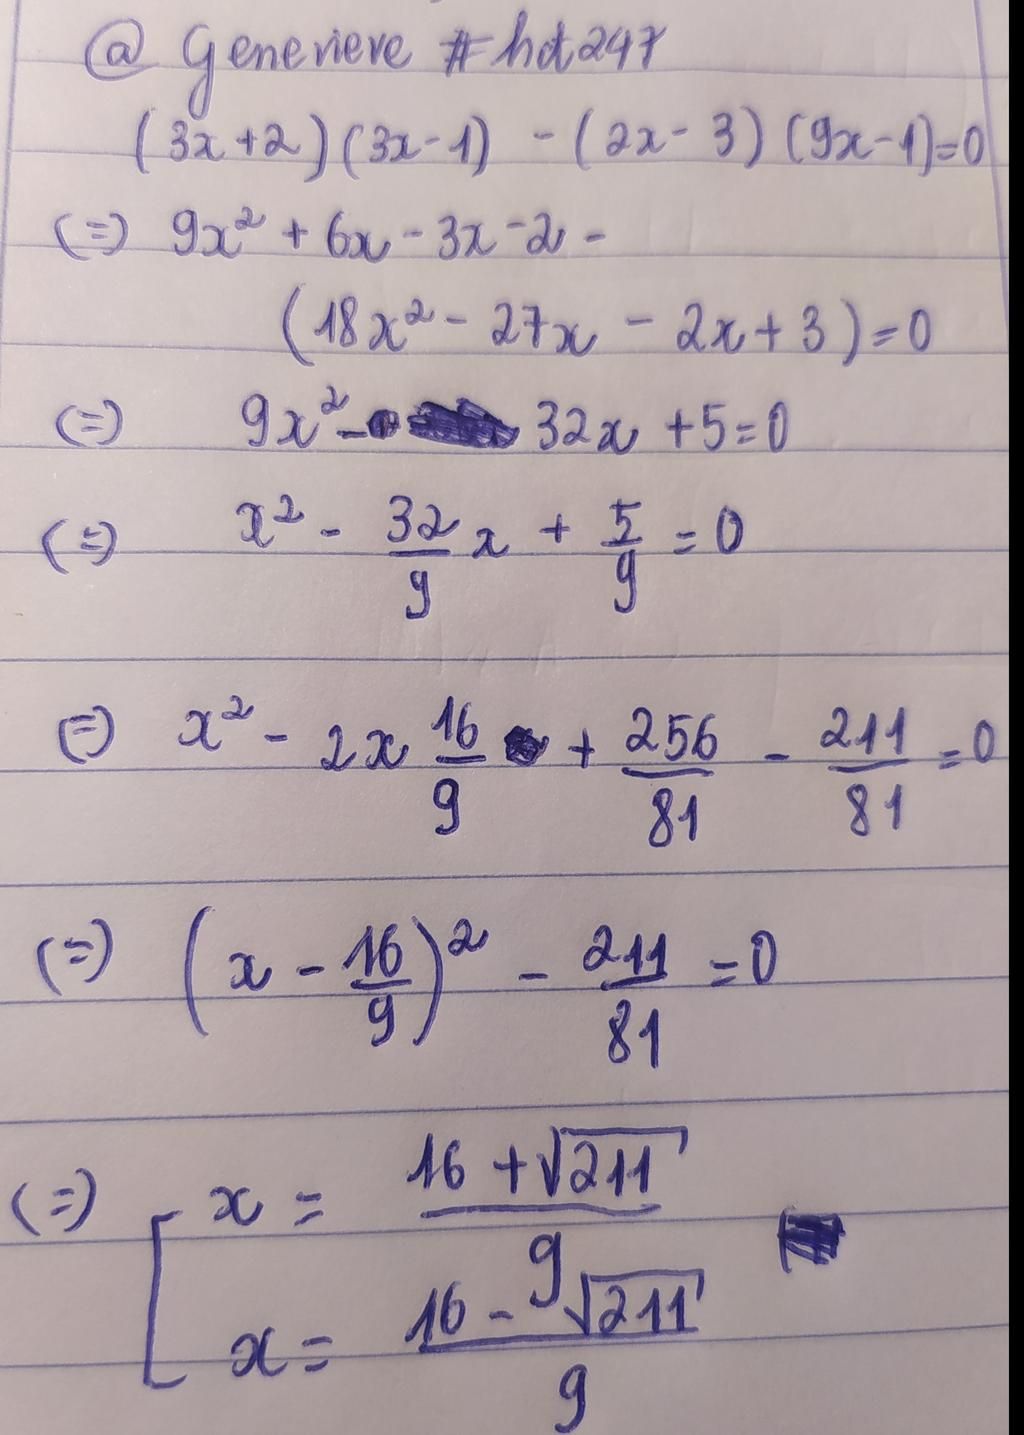 @ Genevieve #hdt247
(3x+2)(3x-1) - (2x-3)(9x-1)=0
(=) 9x² + 6x - 3x - 2 -
(18x² - 27x - 2x + 3) = 0
(=) 9x² - 32x + 5 = 0
(=) x² - 32/9 x + 5/9 = 0
(=) x² - 2x 16/9 + 256/81 - 211/81 = 0
(=) (x - 16/9)² - 211/81 = 0
(=) [ x = (16 + √211)/9
x = (16 - √211)/9